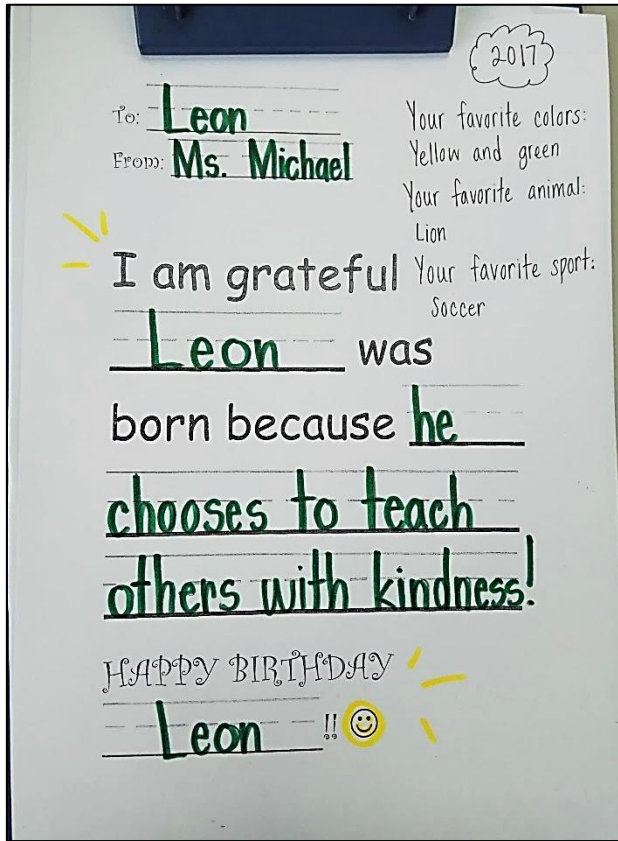 2017
To: Leon
From: Ms. Michael
Your favorite colors:
Yellow and green
Your favorite animal:
Lion
Your favorite sport:
Soccer
I am grateful
Leon was
born because he
chooses to teach
others with kindness!
HAPPY BIRTHDAY
Leon !!